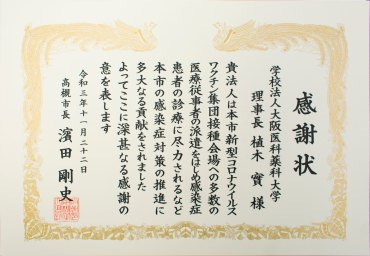 感謝状
学校法人大阪医科薬科大学
理事長 植木 實 様
貴法人は本市新型コロナウイルス
ワクチン集団接種会場への多数の
医療従事者の派遣をはじめ感染症
患者の診療に尽力されるなど
本市の感染症対策の推進に
多大なる貢献をされました
よってここに深甚なる感謝の
意を表します
令和三年十一月二十二日
高槻市長 濱田 剛史